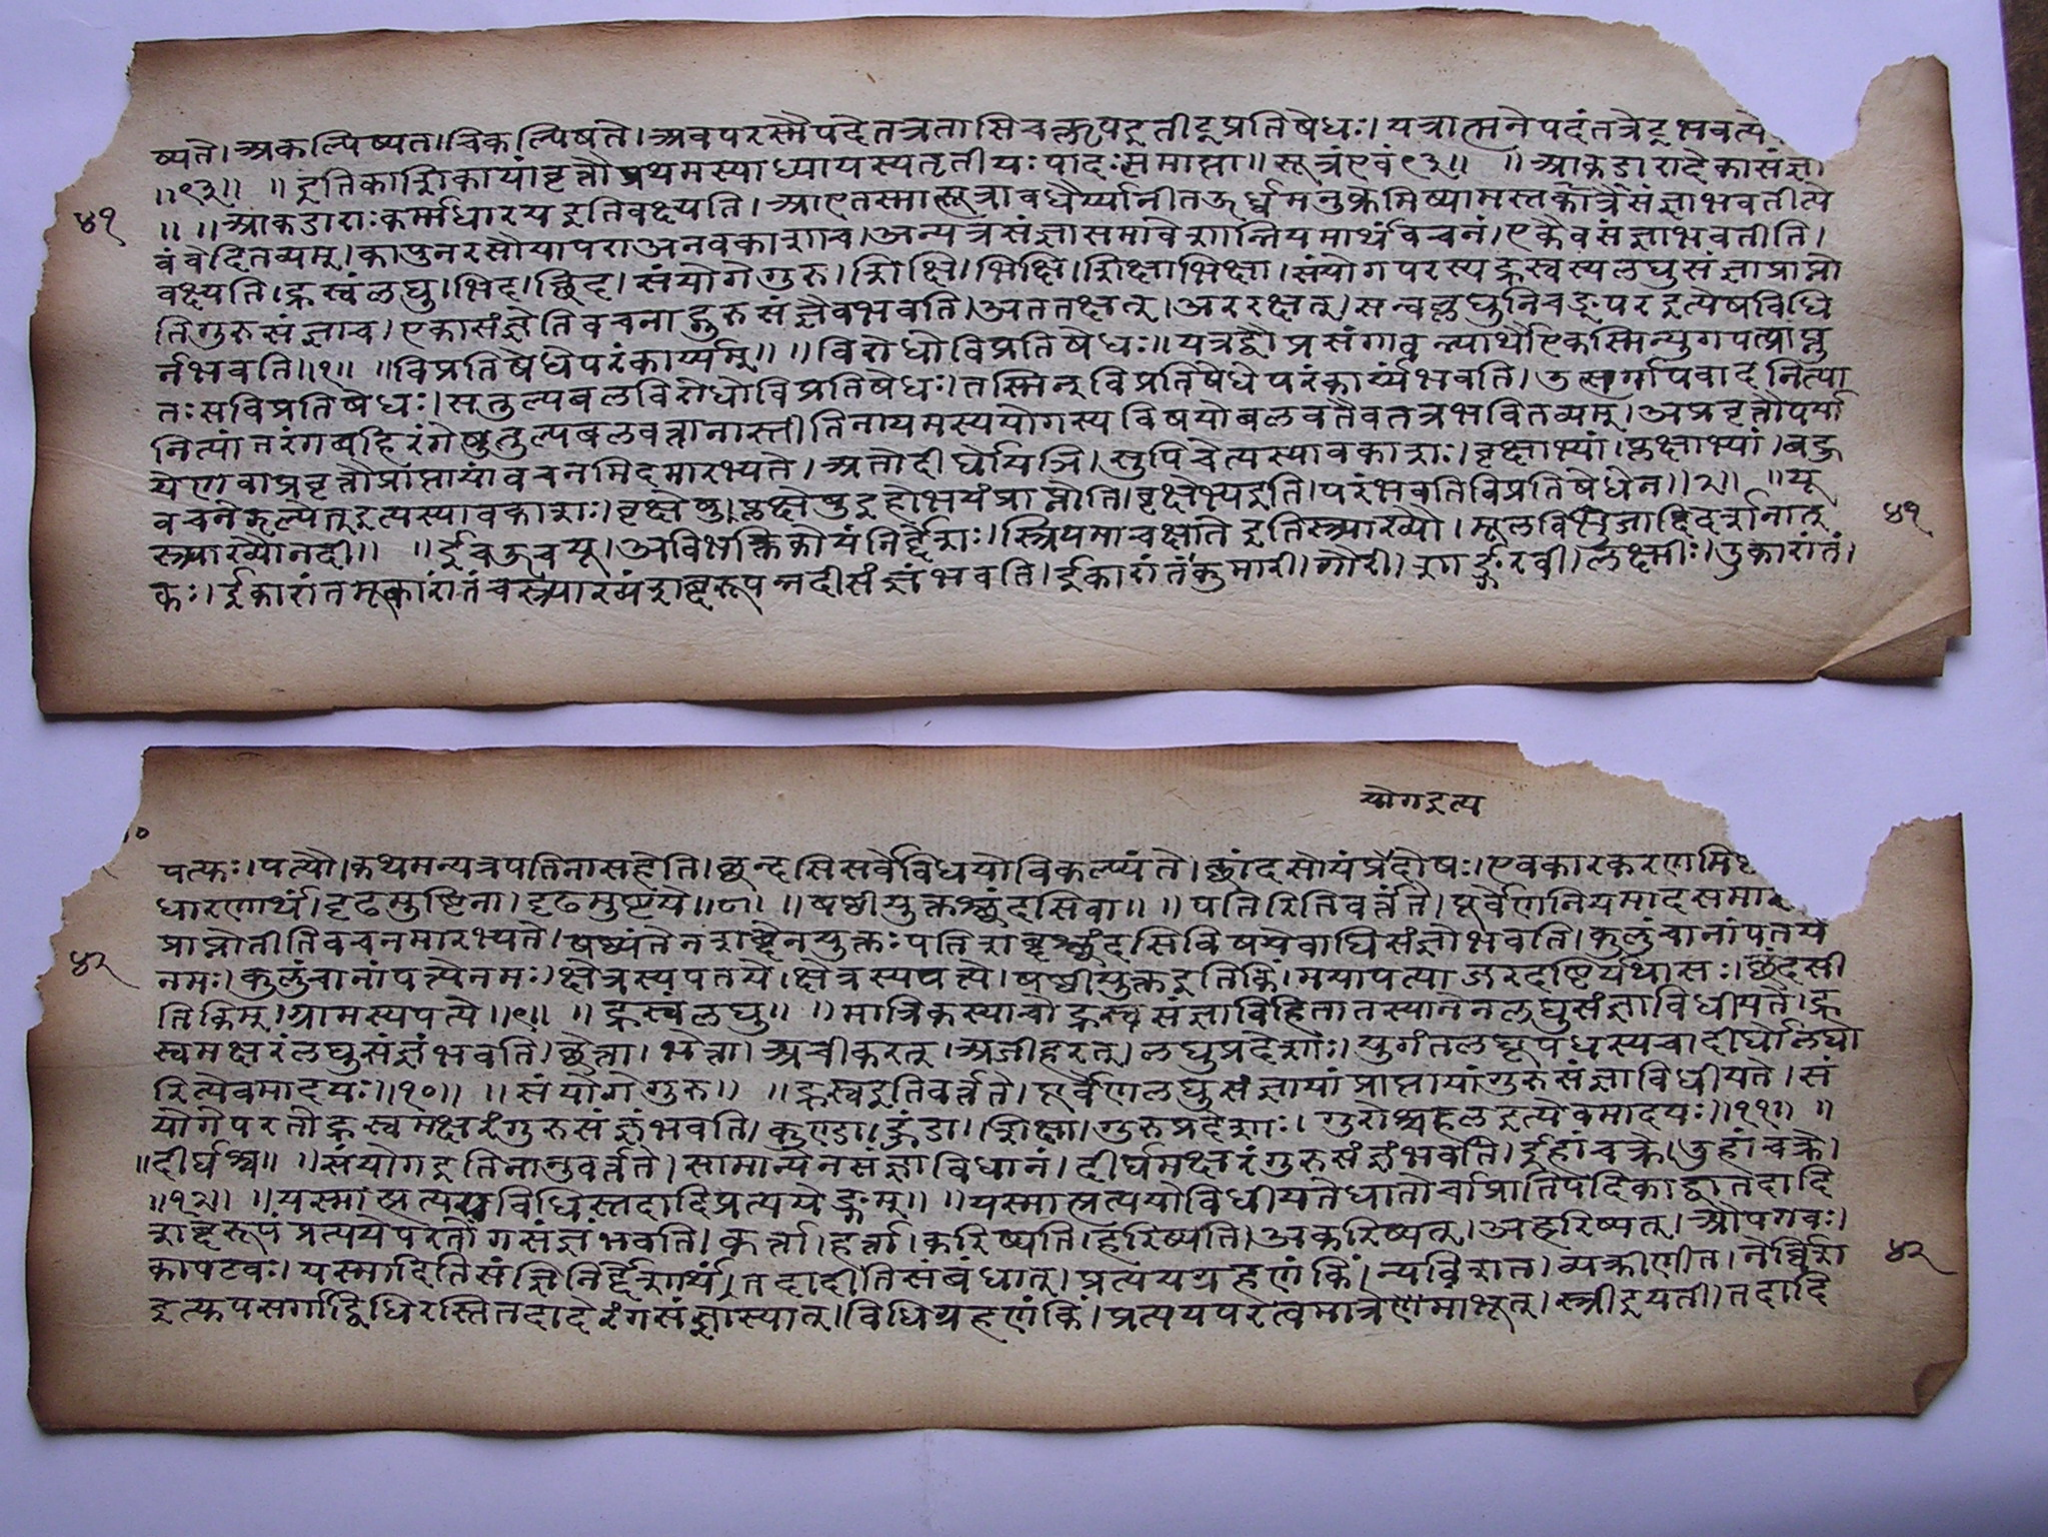 ष्यते।अकल्पिष्यत।चिकल्पिषते।अवपरस्मैपदेतत्रतासिचक्लृपइतीट्प्रतिषेधः।यत्रात्मनेपदंतत्रेट्भवत्ये
॥९३॥ ॥इतिकाशिकायांवृत्तौप्रथमस्याध्यायस्यतृतीयःपादःसमाप्तः॥सूत्रंएवं९३॥ ॥आकडारादेकासंज्ञा
४१
॥ ॥आकडाराःकर्म्मधारयइतिवक्ष्यति।आएतस्मात्सूत्रावधेर्य्यानीतऊर्ध्वमनुक्रमिष्यामस्तत्रैकैसंज्ञाभवतीत्ये
वंवेदितव्यम्।कापुनरसौयापराअनवकाशाच।अन्यत्रसंज्ञासमावेशान्नियमार्थंवचनं।एकैवसंज्ञाभवतीति।
वक्ष्यति।ह्रस्वंलघु।भिद।छिद।संयोगेगुरु।शिक्षि।भिक्षि।शिक्षाभिक्षा।संयोगपरस्यह्रस्वस्यलघुसंज्ञाप्राप्नो
तिगुरुसंज्ञाच।एकासंज्ञेतिवचनाद्गुरुसंज्ञैवभवति।अततक्षत्।अररक्षत्।सन्वल्लघुनिचङ्परइत्येषविधि
र्नभवति॥१॥ ॥विप्रतिषेधेपरंकार्य्यम्॥ ॥विरोधोविप्रतिषेधः॥यत्रद्वौप्रसंगावन्यार्थाएकस्मिन्युगपत्प्राप्नु
तःसविप्रतिषेधः।सतुल्यबलविरोधोविप्रतिषेधः।तस्मिन्विप्रतिषेधेपरंकार्य्यंभवति।उत्सर्गापवादनित्या
नित्यांतरंगबहिरंगेषुतुल्यबलवत्तानास्तीतिनायमस्ययोगस्यविषयोबलवतैवतत्रभवितव्यम्।अप्रवृत्तौपर्या
येणवाप्रवृत्तौप्राप्तायांवचनमिदमारभ्यते।अतोदीर्घोयञि।सुपिचेत्यस्यावकाशः।वृक्षाभ्यां।प्लक्षाभ्यां।बहु
वचनेझल्येत्इत्यस्यावकाशः।वृक्षेषु।प्लक्षेषुइहोभयंप्राप्नोति।वृक्षेभ्यइति।परंभवतिविप्रतिषेधेन॥२॥ ॥यू
४१
स्त्र्याख्यौनदी॥ ॥ईचऊचयू।अविभक्तिकोयंनिर्द्देशः।स्त्रियमाचक्षातेइतिस्त्र्याख्यौ।मूलविभुजादिदर्शनात्
कः।ईकारांतमूकारांतंचस्त्र्याख्यंशब्दरूपंनदीसंज्ञंभवति।ईकारांतंकुमारी।गौरी।शार्ङ्गरवी।लक्ष्मीः।उकारांतं।
योगइत्य
पत्यः।पत्यौ।कथमन्यत्रपतिनासहेति।छन्दसिसर्वेविधयोविकल्प्यंते।छांदसोयंप्रदोषः।एवकारकरणमि
धारणार्थं।दृढमुष्टिना।दृढमुष्टये॥८॥ ॥षष्ठीयुक्तश्छंदसिवा॥ ॥पतिरितिवर्त्तते।पूर्वेणनियमादसमा
प्राप्नोतीतिवचनमारभ्यते।षष्ठ्यंतेनशब्देनयुक्तःपतिशब्दश्छंदसिविषयेवाघिसंज्ञोभवति।कुलुंचानांपतये
४२
नमः।कुलुंचानांपत्येनमः।क्षेत्रस्यपतये।क्षेत्रस्यपत्ये।षष्ठीयुक्तइतिकिं।मयापत्याजरदष्टिर्यथासः।छंदसी
तिकिम्।ग्रामस्यपत्ये॥९॥ ॥ह्रस्वंलघु॥ ॥मात्रिकस्याचोह्रस्वसंज्ञाविहितातस्यानेनलघुसंज्ञाविधीयते।ह्र
स्वमक्षरंलघुसंज्ञंभवति।छेत्ता।भेत्ता।अचीकरत्।अजीहरत्।लघुप्रदेशाः।पुगंतलघूपधस्यचादीर्घोलघो
रित्येवमादयः॥१०॥ ॥संयोगेगुरु॥ ॥ह्रस्वइतिवर्त्तते।पूर्वेणलघुसंज्ञायांप्राप्तायांगुरुसंज्ञाविधीयते।सं
योगेपरतोह्रस्वमक्षरंगुरुसंज्ञंभवति।कुण्डा।हुंडा।शिक्षा।गुरुप्रदेशाः।गुरोश्चहलइत्येवमादयः॥११॥ ॥
॥दीर्घश्च॥ ॥संयोगइतिनानुवर्त्तते।सामान्येनसंज्ञाविधानं।दीर्घमक्षरंगुरुसंज्ञंभवति।ईहांचक्रे।उहांचक्रे।
॥१२॥ ॥यस्मात्प्रत्ययविधिस्तदादिप्रत्ययेङ्गम्॥ ॥यस्मात्प्रत्ययोविधीयतेधातोर्वाप्रातिपदिकाद्वातदादि
शब्दरूपंप्रत्ययेपरतोंगसंज्ञंभवति।कर्त्ता।हर्त्ता।करिष्यति।हरिष्यति।अकरिष्यत्।अहरिष्यत्।औपगवः।
४२
कापटवः।यस्मादितिसंज्ञिनिर्द्देशार्थं।तदादीतिसंबधात्।प्रत्ययग्रहणंकिं।न्यविशत।व्यक्रीणीत।नेर्विशि
इत्युपसर्गाद्विधिरस्तितदादेरंगसंज्ञास्यात्।विधिग्रहणंकिं।प्रत्ययपरत्वमात्रेणमाभूत्।स्त्रीइयती।तदादि